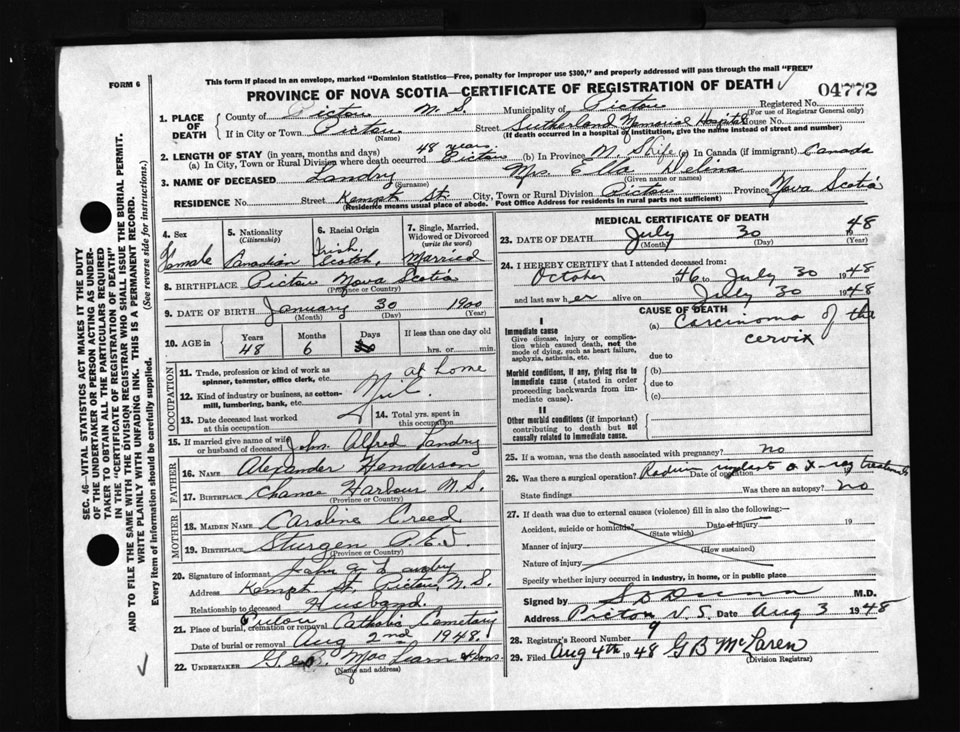 This form if placed in an envelope, marked "Dominion Statistics—Free, penalty for improper use $300," and properly addressed will pass through the mail "FREE"
FORM 6
PROVINCE OF NOVA SCOTIA—CERTIFICATE OF REGISTRATION OF DEATH
04772
1. PLACE OF DEATH County of Pictou N.S. Municipality of Pictou Registered No.
(For use of Registrar General only)
If in City or Town Pictou Street Sutherland Memorial Hospital House No.
(Name) (If death occurred in a hospital or institution, give the name instead of street and number)
2. LENGTH OF STAY (in years, months and days) 48 years
(a) In City, Town or Rural Division where death occurred Pictou (b) In Province N.S. life (c) In Canada (if immigrant) Canada
3. NAME OF DECEASED Landry Mrs. Ella
(Surname) (Given name or names)
RESIDENCE No. Street Kempt St. City, Town or Rural Division Pictou Province Nova Scotia
(Residence means usual place of abode. Post Office Address for residents in rural parts not sufficient)
4. Sex Female
5. Nationality (Citizenship) Canadian
6. Racial Origin Irish, Scotch
7. Single, Married, Widowed or Divorced (write the word) Married
8. BIRTHPLACE Pictou Nova Scotia
(Province or Country)
9. DATE OF BIRTH January 30 1900
(Month) (Day) (Year)
10. AGE in Years 48 Months 6 Days If less than one day old hrs. or min.
OCCUPATION
11. Trade, profession or kind of work as spinner, teamster, office clerk, etc. at home
12. Kind of industry or business, as cotton-mill, lumbering, bank, etc. Nil
13. Date deceased last worked at this occupation
14. Total yrs. spent in this occupation
15. If married give name of wife or husband of deceased John Alfred Landry
FATHER
16. NAME Alexander Henderson
17. BIRTHPLACE Chance Harbour N.S.
(Province or Country)
MOTHER
18. MAIDEN NAME Caroline Creed
19. BIRTHPLACE Sturgen P.E.I.
(Province or Country)
20. Signature of informant John A Landry
Address Kempt St. Pictou, N.S.
Relationship to deceased Husband.
21. Place of burial, cremation or removal Pictou Catholic Cemetary
Date of burial or removal Aug 2nd 1948.
22. UNDERTAKER Geo. MacLearn & Sons.
(Name and address)
MEDICAL CERTIFICATE OF DEATH
23. DATE OF DEATH July 30 1948
(Month) (Day) (Year)
24. I HEREBY CERTIFY that I attended deceased from:
October 1946 to July 30 1948
and last saw her alive on July 30 1948
CAUSE OF DEATH
I
Immediate cause
Give disease, injury or complication which caused death, not the mode of dying, such as heart failure, asphyxia, asthenia, etc.
(a) Carcinoma of the cervix
due to
Morbid conditions, if any, giving rise to immediate cause (stated in order proceeding backwards from immediate cause).
(b)
due to
(c)
II
Other morbid conditions (if important) contributing to death but not causally related to immediate cause.
25. If a woman, was the death associated with pregnancy? No
26. Was there a surgical operation? Date of operation Radium implant & X-ray treatments
State findings Was there an autopsy? No
27. If death was due to external causes (violence) fill in also the following:—
Accident, suicide or homicide? Date of injury 19
(State which)
Manner of injury
(How sustained)
Nature of injury
Specify whether injury occurred in industry, in home, or in public place
Signed by S D Dunn M.D.
Address Pictou N.S. Date Aug 3 1948
28. Registrar's Record Number 9
29. Filed Aug 4th 1948 G B McLaren
(Division Registrar)
SEC. 46—VITAL STATISTICS ACT MAKES IT THE DUTY OF THE UNDERTAKER OR PERSON ACTING AS UNDERTAKER TO OBTAIN ALL THE PARTICULARS REQUIRED IN THE "CERTIFICATE OF REGISTRATION OF DEATH" AND TO FILE THE SAME WITH THE DIVISION REGISTRAR WHO SHALL ISSUE THE BURIAL PERMIT.
WRITE PLAINLY WITH UNFADING INK. THIS IS A PERMANENT RECORD.
Every item of information should be carefully supplied. (See reverse side for instructions.)